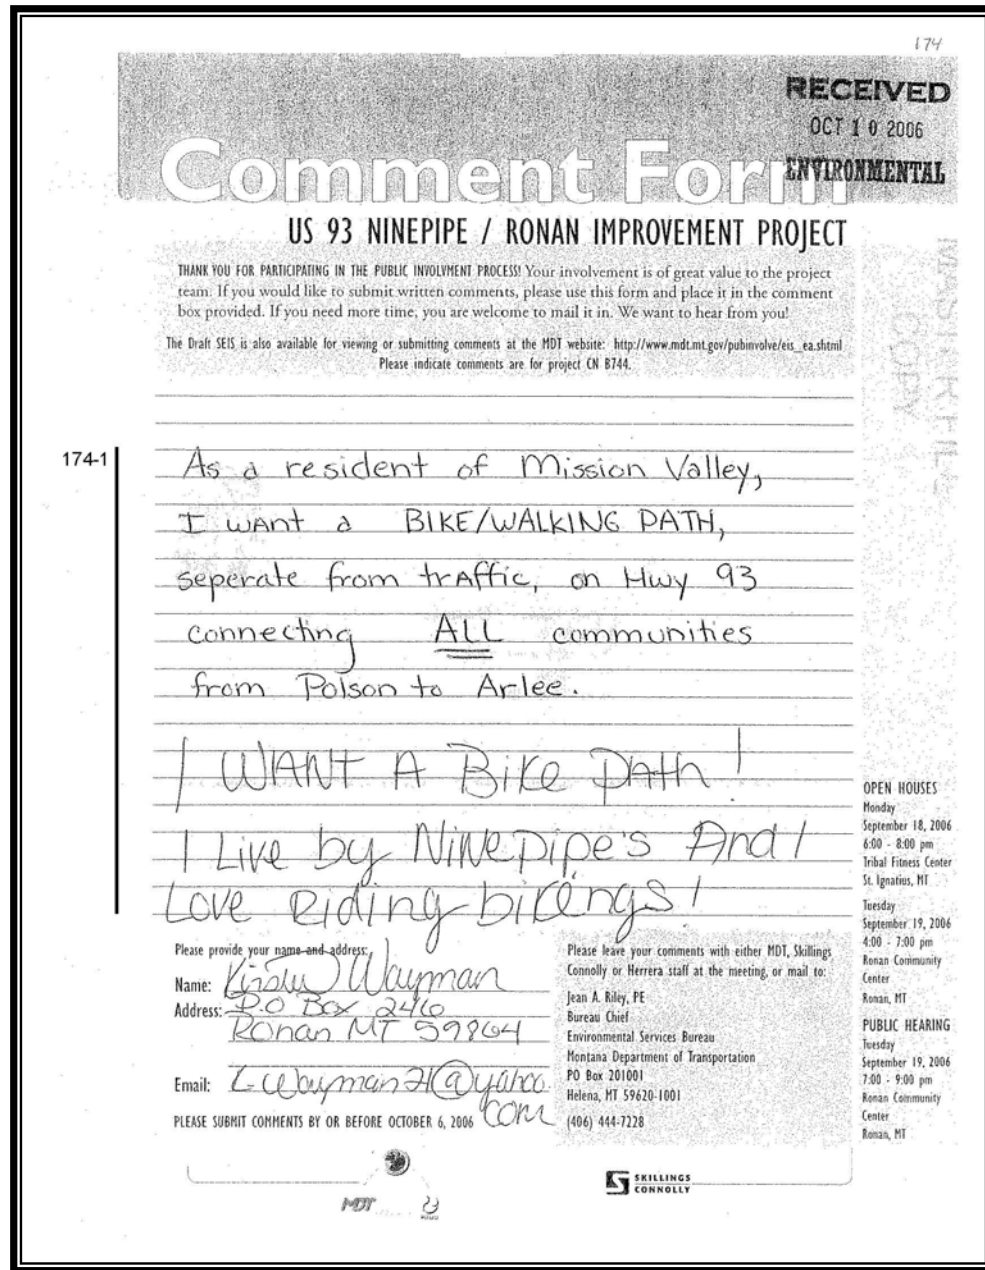 174
RECEIVED
OCT 1 0 2006
ENVIRONMENTAL
Comment Form
US 93 NINEPIPE / RONAN IMPROVEMENT PROJECT
THANK YOU FOR PARTICIPATING IN THE PUBLIC INVOLVMENT PROCESS! Your involvement is of great value to the project
team. If you would like to submit written comments, please use this form and place it in the comment
box provided. If you need more time, you are welcome to mail it in. We want to hear from you!
The Draft SEIS is also available for viewing or submitting comments at the MDT website: http://www.mdt.mt.gov/pubinvolve/eis_ea.shtml
Please indicate comments are for project CN B744.
MASTER FILE
COPY
174-1
As a resident of Mission Valley,
I want a BIKE/WALKING PATH,
seperate from traffic, on Hwy 93
connecting ALL communities
from Polson to Arlee.
I WANT A Bike Path!
I Live by Ninepipe's And I
Love Riding bikengs!
Please provide your name and address:
Name: Wayman
Address: P.O Box 246
Ronan MT 59864
Email: @yahoo.
com
PLEASE SUBMIT COMMENTS BY OR BEFORE OCTOBER 6, 2006
Please leave your comments with either MDT, Skillings
Connolly or Herrera staff at the meeting, or mail to:
Jean A. Riley, PE
Bureau Chief
Environmental Services Bureau
Montana Department of Transportation
PO Box 201001
Helena, MT 59620-1001
(406) 444-7228
OPEN HOUSES
Monday
September 18, 2006
6:00 - 8:00 pm
Tribal Fitness Center
St. Ignatius, MT
Tuesday
September 19, 2006
4:00 - 7:00 pm
Ronan Community
Center
Ronan, MT
PUBLIC HEARING
Tuesday
September 19, 2006
7:00 - 9:00 pm
Ronan Community
Center
Ronan, MT
MDT
SKILLINGS
CONNOLLY